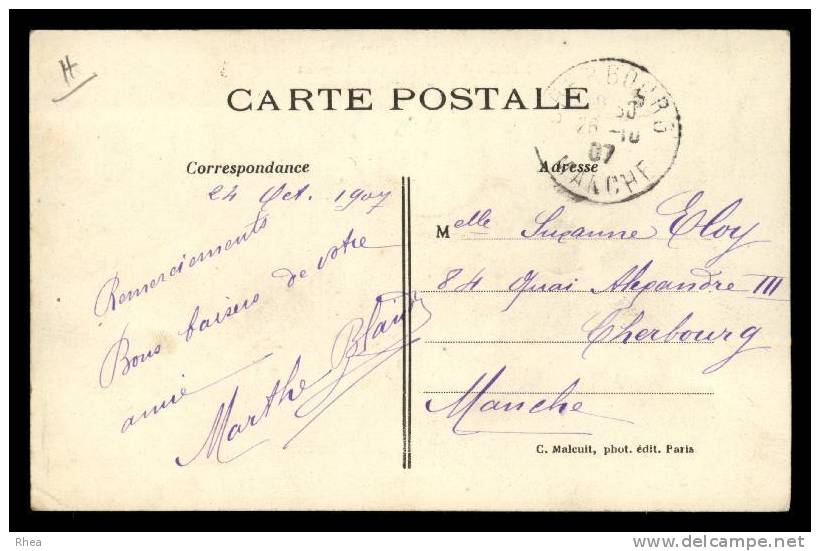 H
CARTE POSTALE
CHERBOURG
8 30
26 -10
07
MANCHE
Correspondance
Adresse
24 Oct. 1907
Remerciements
Bons baisers de votre
amie
Marthe
Melle Suzanne Eloy
84 Quai Alexandre III
Cherbourg
Manche
C. Malcuit, phot. édit. Paris
Rhea
www.delcampe.net